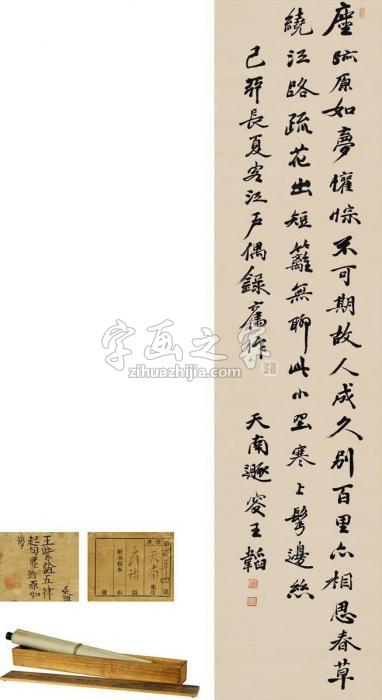 塵跡原如夢懽悰不可期故人成久別百里亦相思春草
繞江路疏花出短籬無聊此小坐寒上鬢邊絲
己卯長夏客江戶偶錄舊作
天南遯叟王韜
字画之家
zihuazhijia.com
王紫詮五律
起句塵跡原如
夢
天南
先生